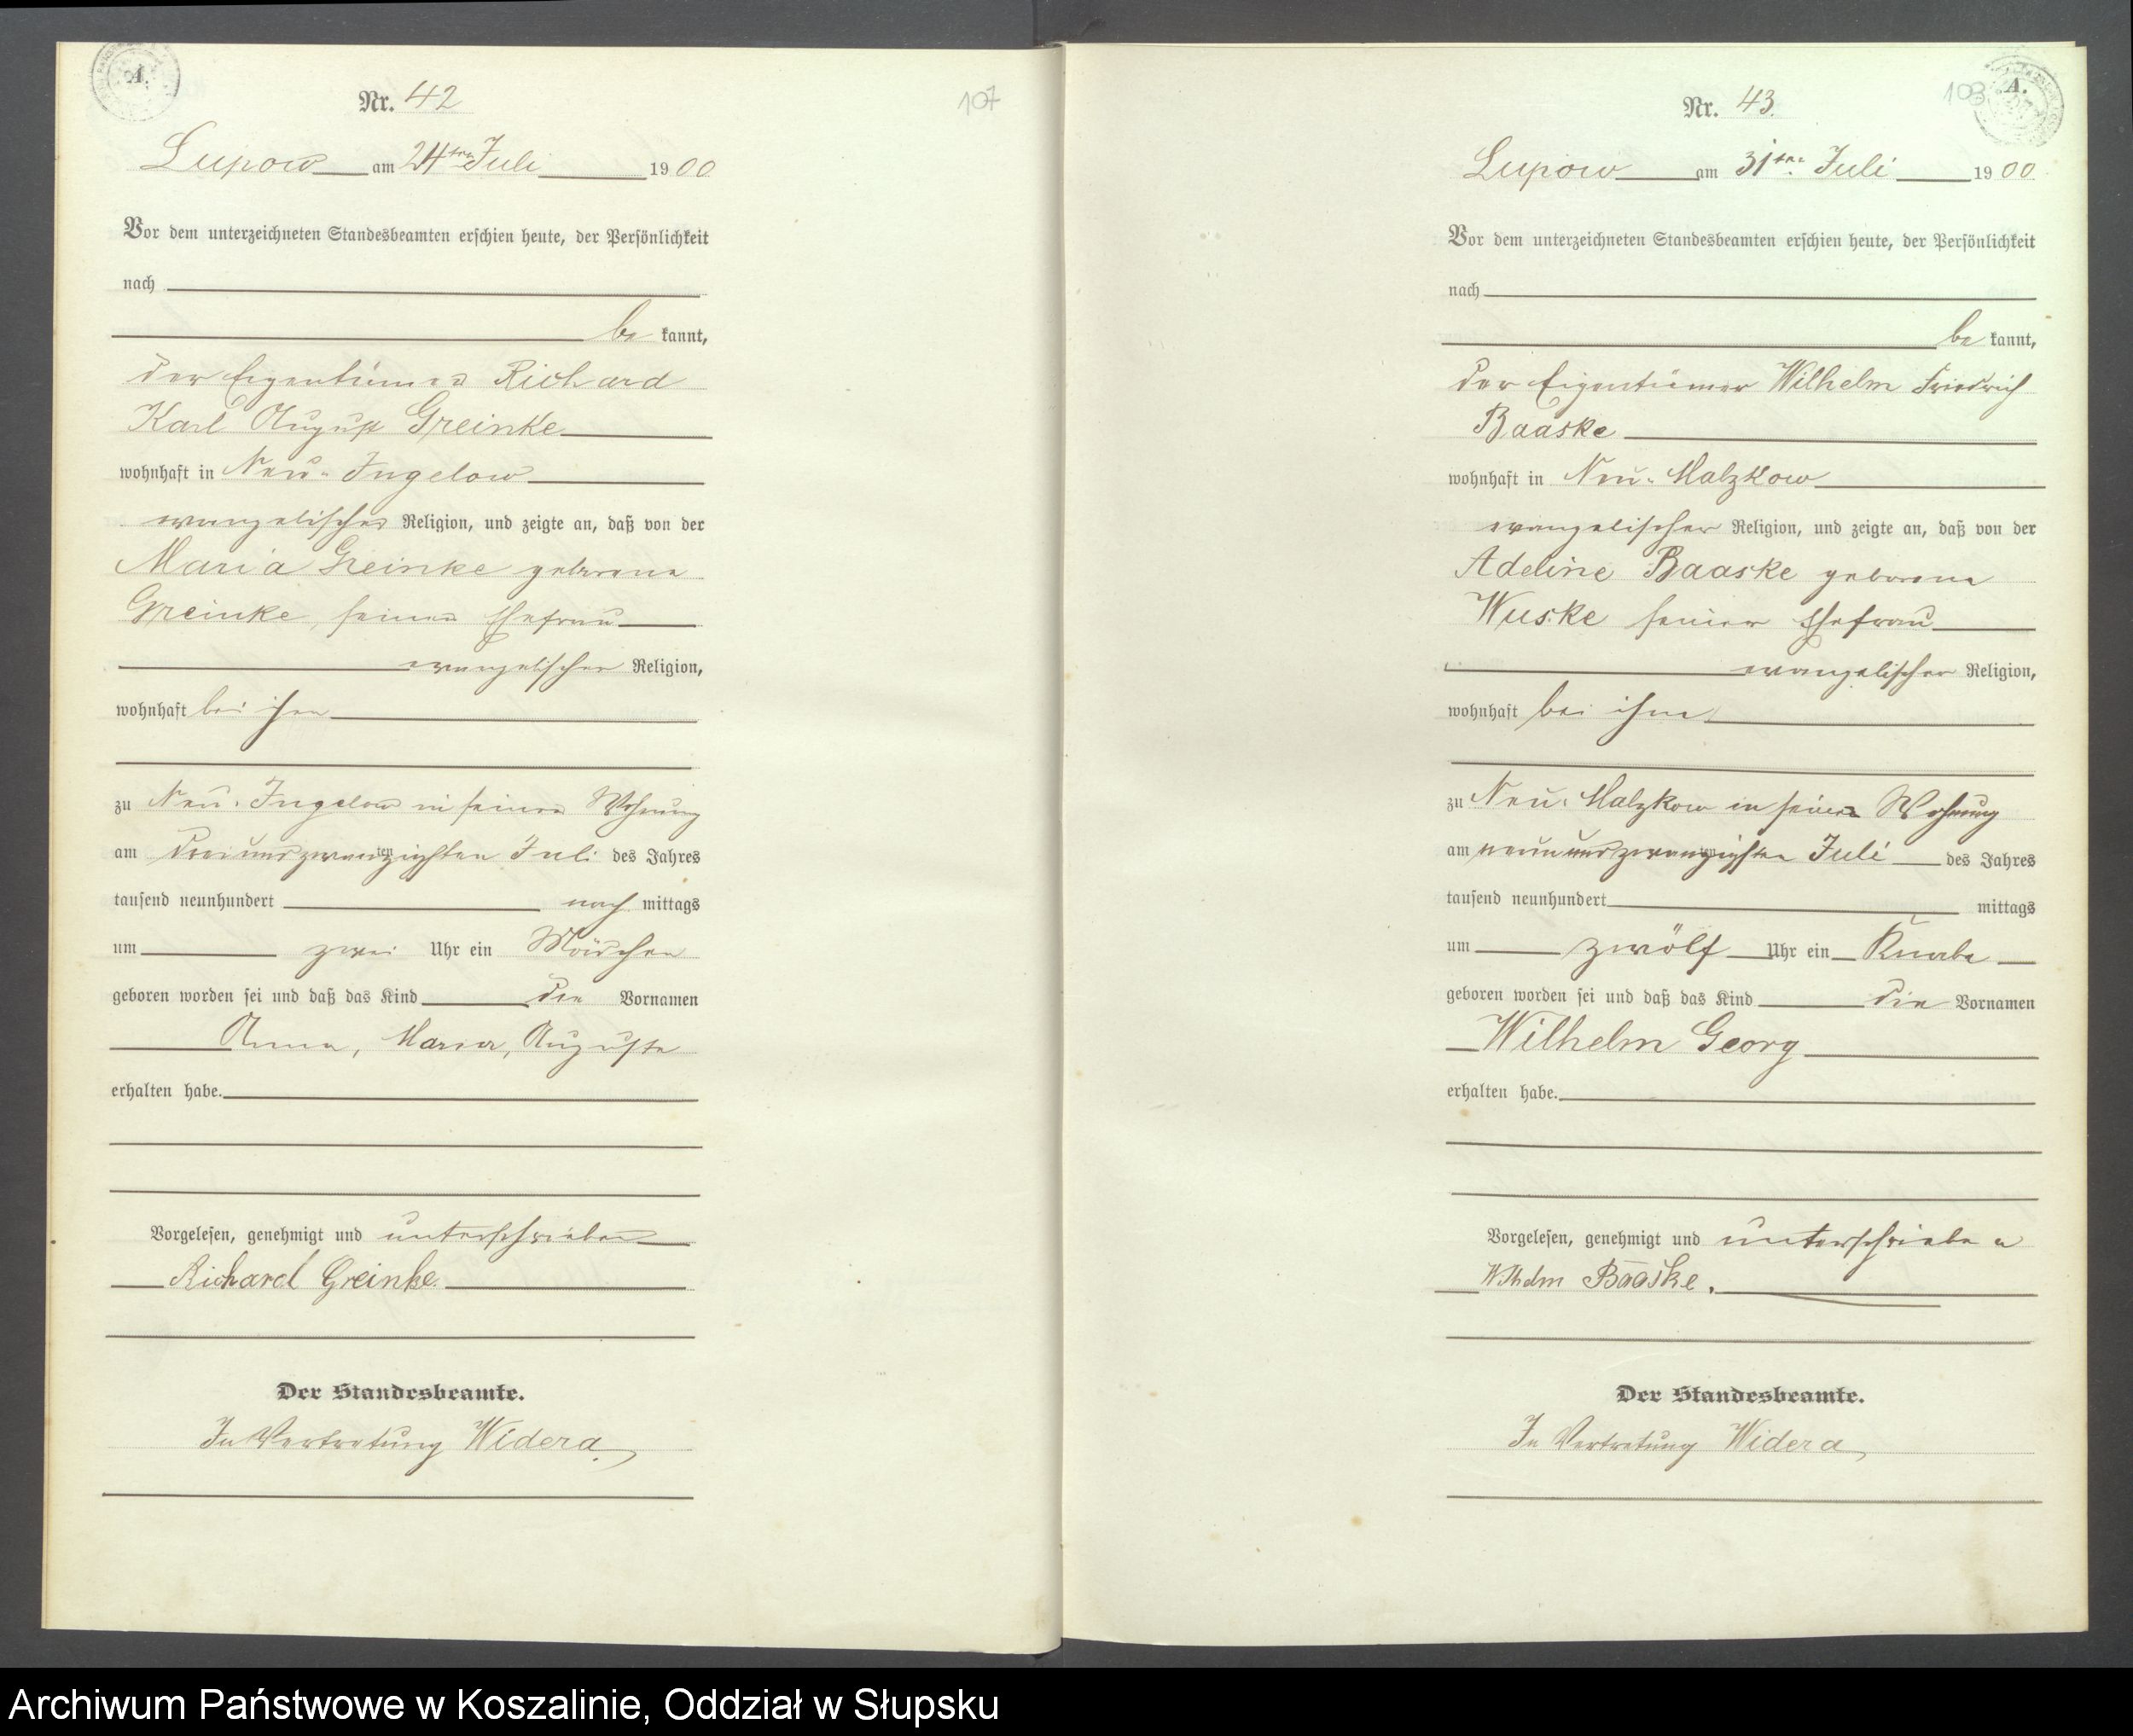 A.
Nr. 42
107
Lupow am 24ten Juli 1900
Vor dem unterzeichneten Standesbeamten erschien heute, der Persönlichkeit
nach
be kannt,
der Eigentümer Richard
Karl August Greinke
wohnhaft in Neu-Jugelow
evangelischer Religion, und zeigte an, daß von der
Maria Greinke geborene
Greinke, seiner Ehefrau
evangelischer Religion,
wohnhaft bei ihm
zu Neu-Jugelow in seiner Wohnung
am dreiundzwanzigsten Juli des Jahres
tausend neunhundert nach mittags
um zwei Uhr ein Mädchen
geboren worden sei und daß das Kind die Vornamen
Anna, Maria, Auguste
erhalten habe.
Vorgelesen, genehmigt und unterschrieben
Richard Greinke.
Der Standesbeamte.
In Vertretung Widera.
A.
Nr. 43.
Lupow am 31ten Juli 1900
Vor dem unterzeichneten Standesbeamten erschien heute, der Persönlichkeit
nach
be kannt,
der Eigentümer Wilhelm Friedrich
Baaske
wohnhaft in Neu-Malzkow
evangelischer Religion, und zeigte an, daß von der
Adeline Baaske geborene
Wuske seiner Ehefrau
evangelischer Religion,
wohnhaft bei ihm
zu Neu-Malzkow in seiner Wohnung
am neunundzwanzigsten Juli des Jahres
tausend neunhundert mittags
um zwölf Uhr ein Knabe
geboren worden sei und daß das Kind die Vornamen
Wilhelm Georg
erhalten habe.
Vorgelesen, genehmigt und unterschrieben
Wilhelm Baaske.
Der Standesbeamte.
In Vertretung Widera
Archiwum Państwowe w Koszalinie, Oddział w Słupsku